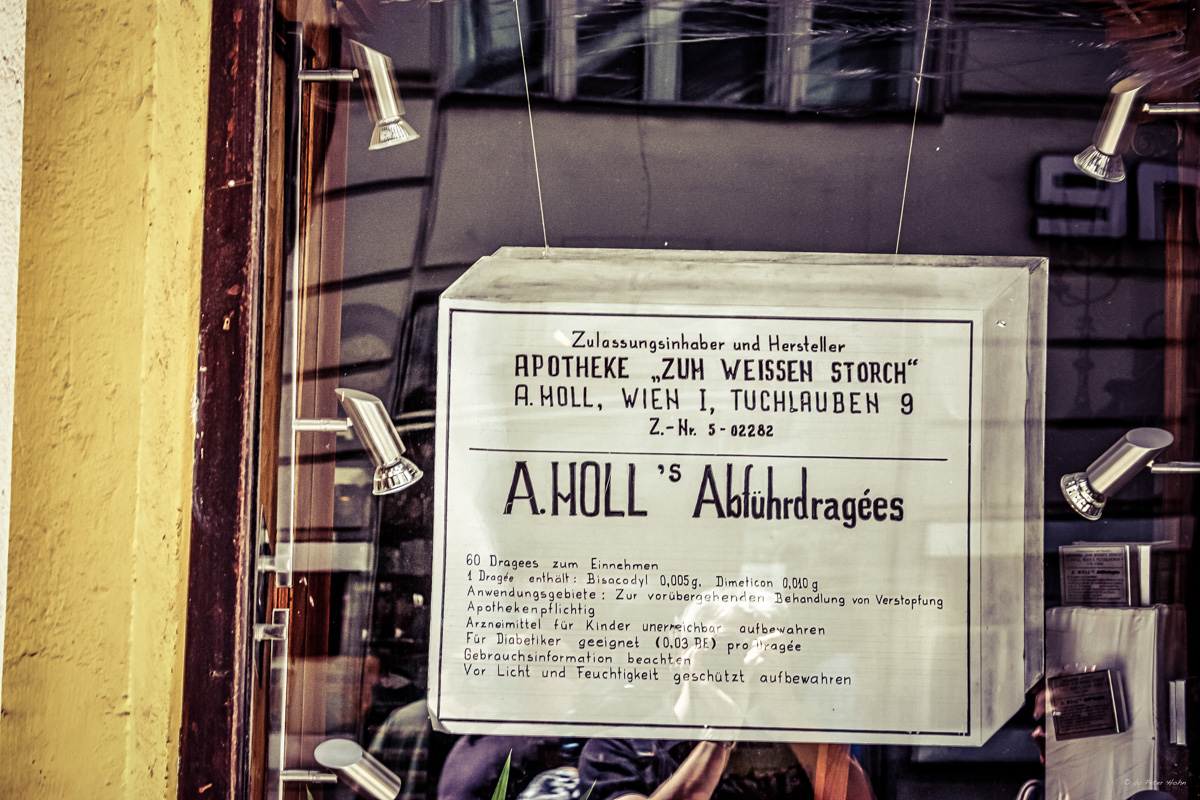 Zulassungsinhaber und Hersteller
APOTHEKE „ZUM WEISSEN STORCH“
A. MOLL, WIEN I, TUCHLAUBEN 9
Z.-Nr. 5-02282
A. MOLL 's Abführdragées
60 Dragees zum Einnehmen
1 Dragée enthält: Bisacodyl 0,005 g, Dimeticon 0,010 g
Anwendungsgebiete: Zur vorübergehenden Behandlung von Verstopfung
Apothekenpflichtig
Arzneimittel für Kinder unerreichbar aufbewahren
Für Diabetiker geeignet (0,03 BE) pro Dragée
Gebrauchsinformation beachten
Vor Licht und Feuchtigkeit geschützt aufbewahren
© by Peter Hohn